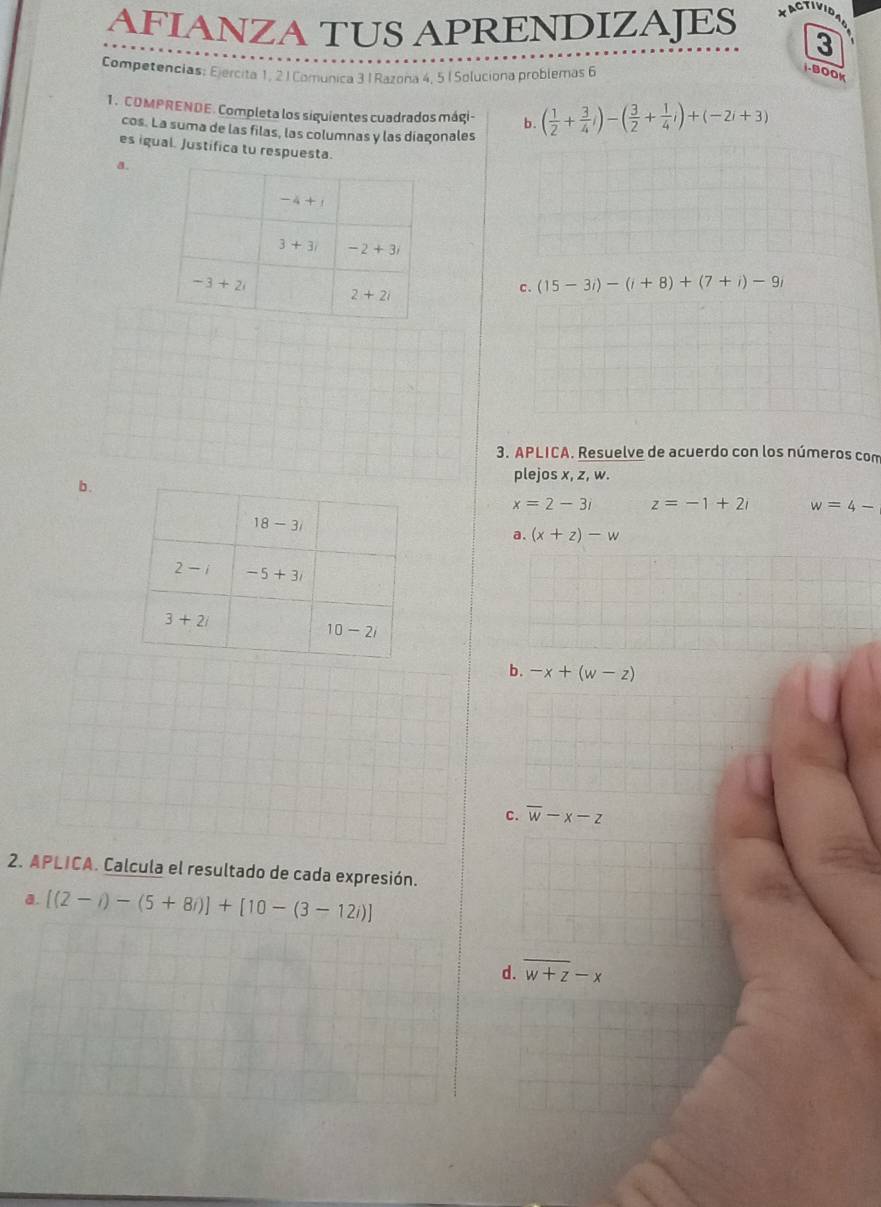 AFIANZA TUS APRENDIZAJES
+ ACTIVIDADES
3
i-BOOK
Competencias: Ejercita 1, 2 I Comunica 3 I Razona 4, 5 I Soluciona problemas 6
1. COMPRENDE. Completa los siguientes cuadrados mági-
cos. La suma de las filas, las columnas y las diagonales
es igual. Justifica tu respuesta.
a.
−4 + i
3 + 3i −2 + 3i
−3 + 2i 2 + 2i
b.
18 − 3i
2 − i −5 + 3i
3 + 2i 10 − 2i
2. APLICA. Calcula el resultado de cada expresión.
a. [(2 − i) − (5 + 8i)] + [10 − (3 − 12i)]
b. (1/2 + 3/4 i) − (3/2 + 1/4 i) + (−2i + 3)
c. (15 − 3i) − (i + 8) + (7 + i) − 9i
3. APLICA. Resuelve de acuerdo con los números com
plejos x, z, w.
x = 2 − 3i z = −1 + 2i w = 4 −
a. (x + z) − w
b. −x + (w − z)
c. w̅ − x − z
d. \overline{w + z} − x